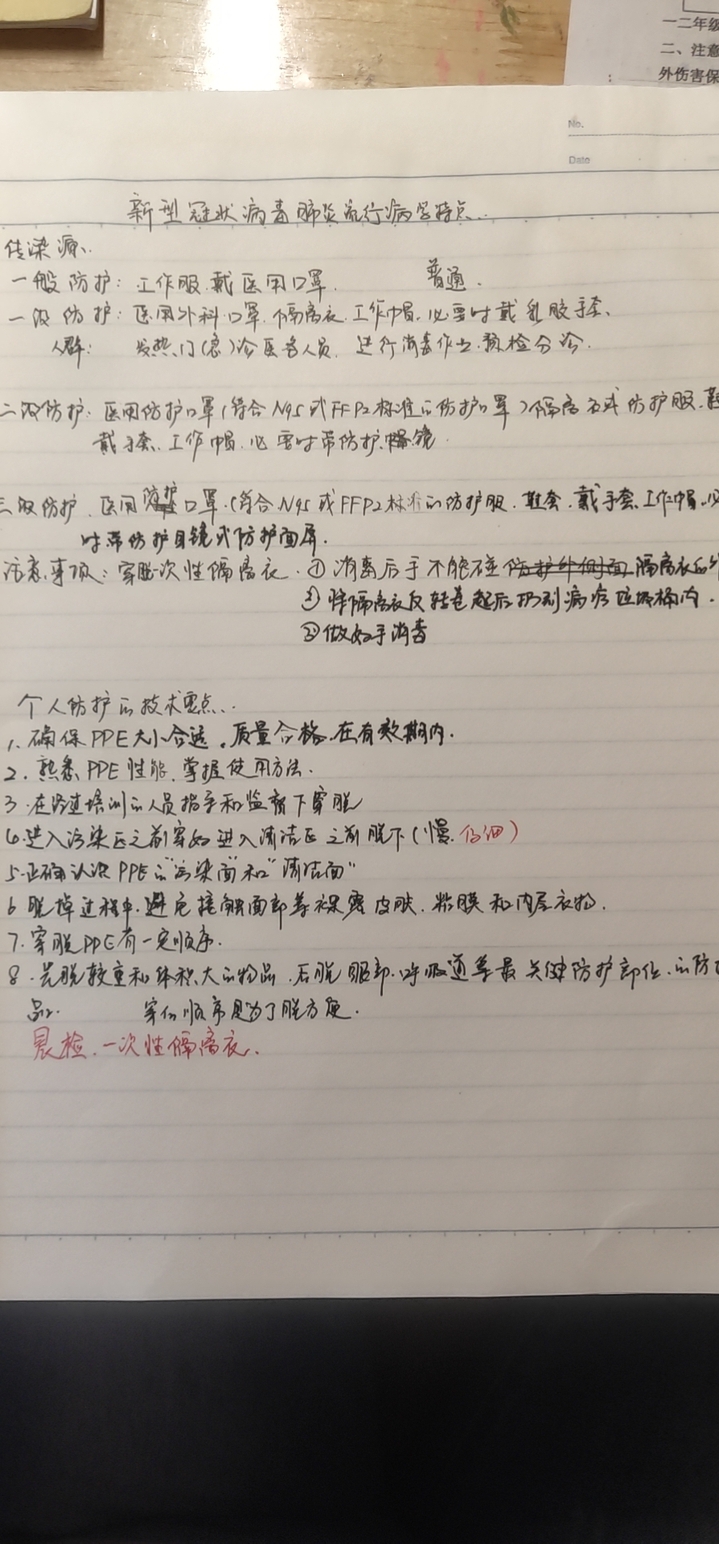 一二年级
二、注意
外伤害保
No.
Date
新型冠状病毒肺炎流行病学特点..
传染源..
一般防护：工作服.戴医用口罩. 普通.
一级防护：医用外科口罩.隔离衣.工作帽.必要时戴乳胶手套.
人群： 发热门(急)诊医务人员. 进行消毒作业.预检分诊.
二级防护：医用防护口罩(符合N95或FFP2标准的防护口罩)隔离衣或防护服.鞋
戴手套.工作帽.必要时带防护眼镜
三级防护.医用防护口罩.(符合N95或FFP2标准的防护服.鞋套.戴手套.工作帽.必
时带防护目镜或防护面屏.
注意事项：穿脱一次性隔离衣.①消毒后手不能碰隔离衣的外
③将隔离衣反转卷起后扔到病疗垃圾桶内.
②做好手消毒
个人防护的技术要点..
1.确保PPE大小合适.质量合格.在有效期内.
2.熟悉PPE性能.掌握使用方法.
3.在经过培训的人员指导和监督下穿脱
4.进入污染区之前穿好进入清洁区之前脱下(慢.仔细)
5.正确认识PPE的“污染面”和“清洁面”
6脱掉过程中.避免接触面部等裸露皮肤.粘膜和内层衣物.
7.穿脱PPE有一定顺序.
8.先脱较重和体积大的物品.后脱眼部.呼吸道等最关键防护部位.的防护
品. 穿的顺序是为了脱方便.
晨检.一次性隔离衣.